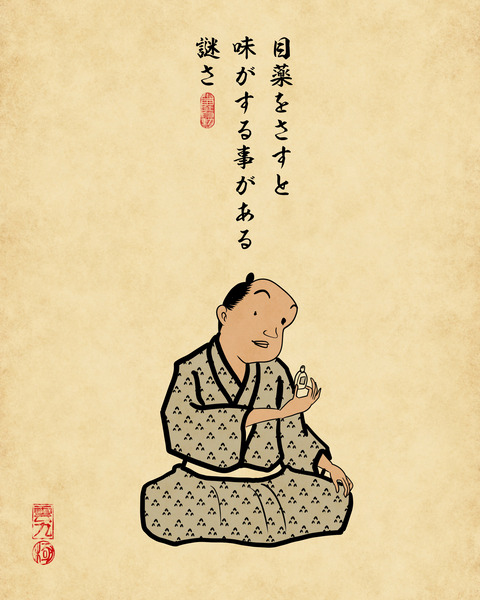 目薬をさすと
味がする事がある
謎さ